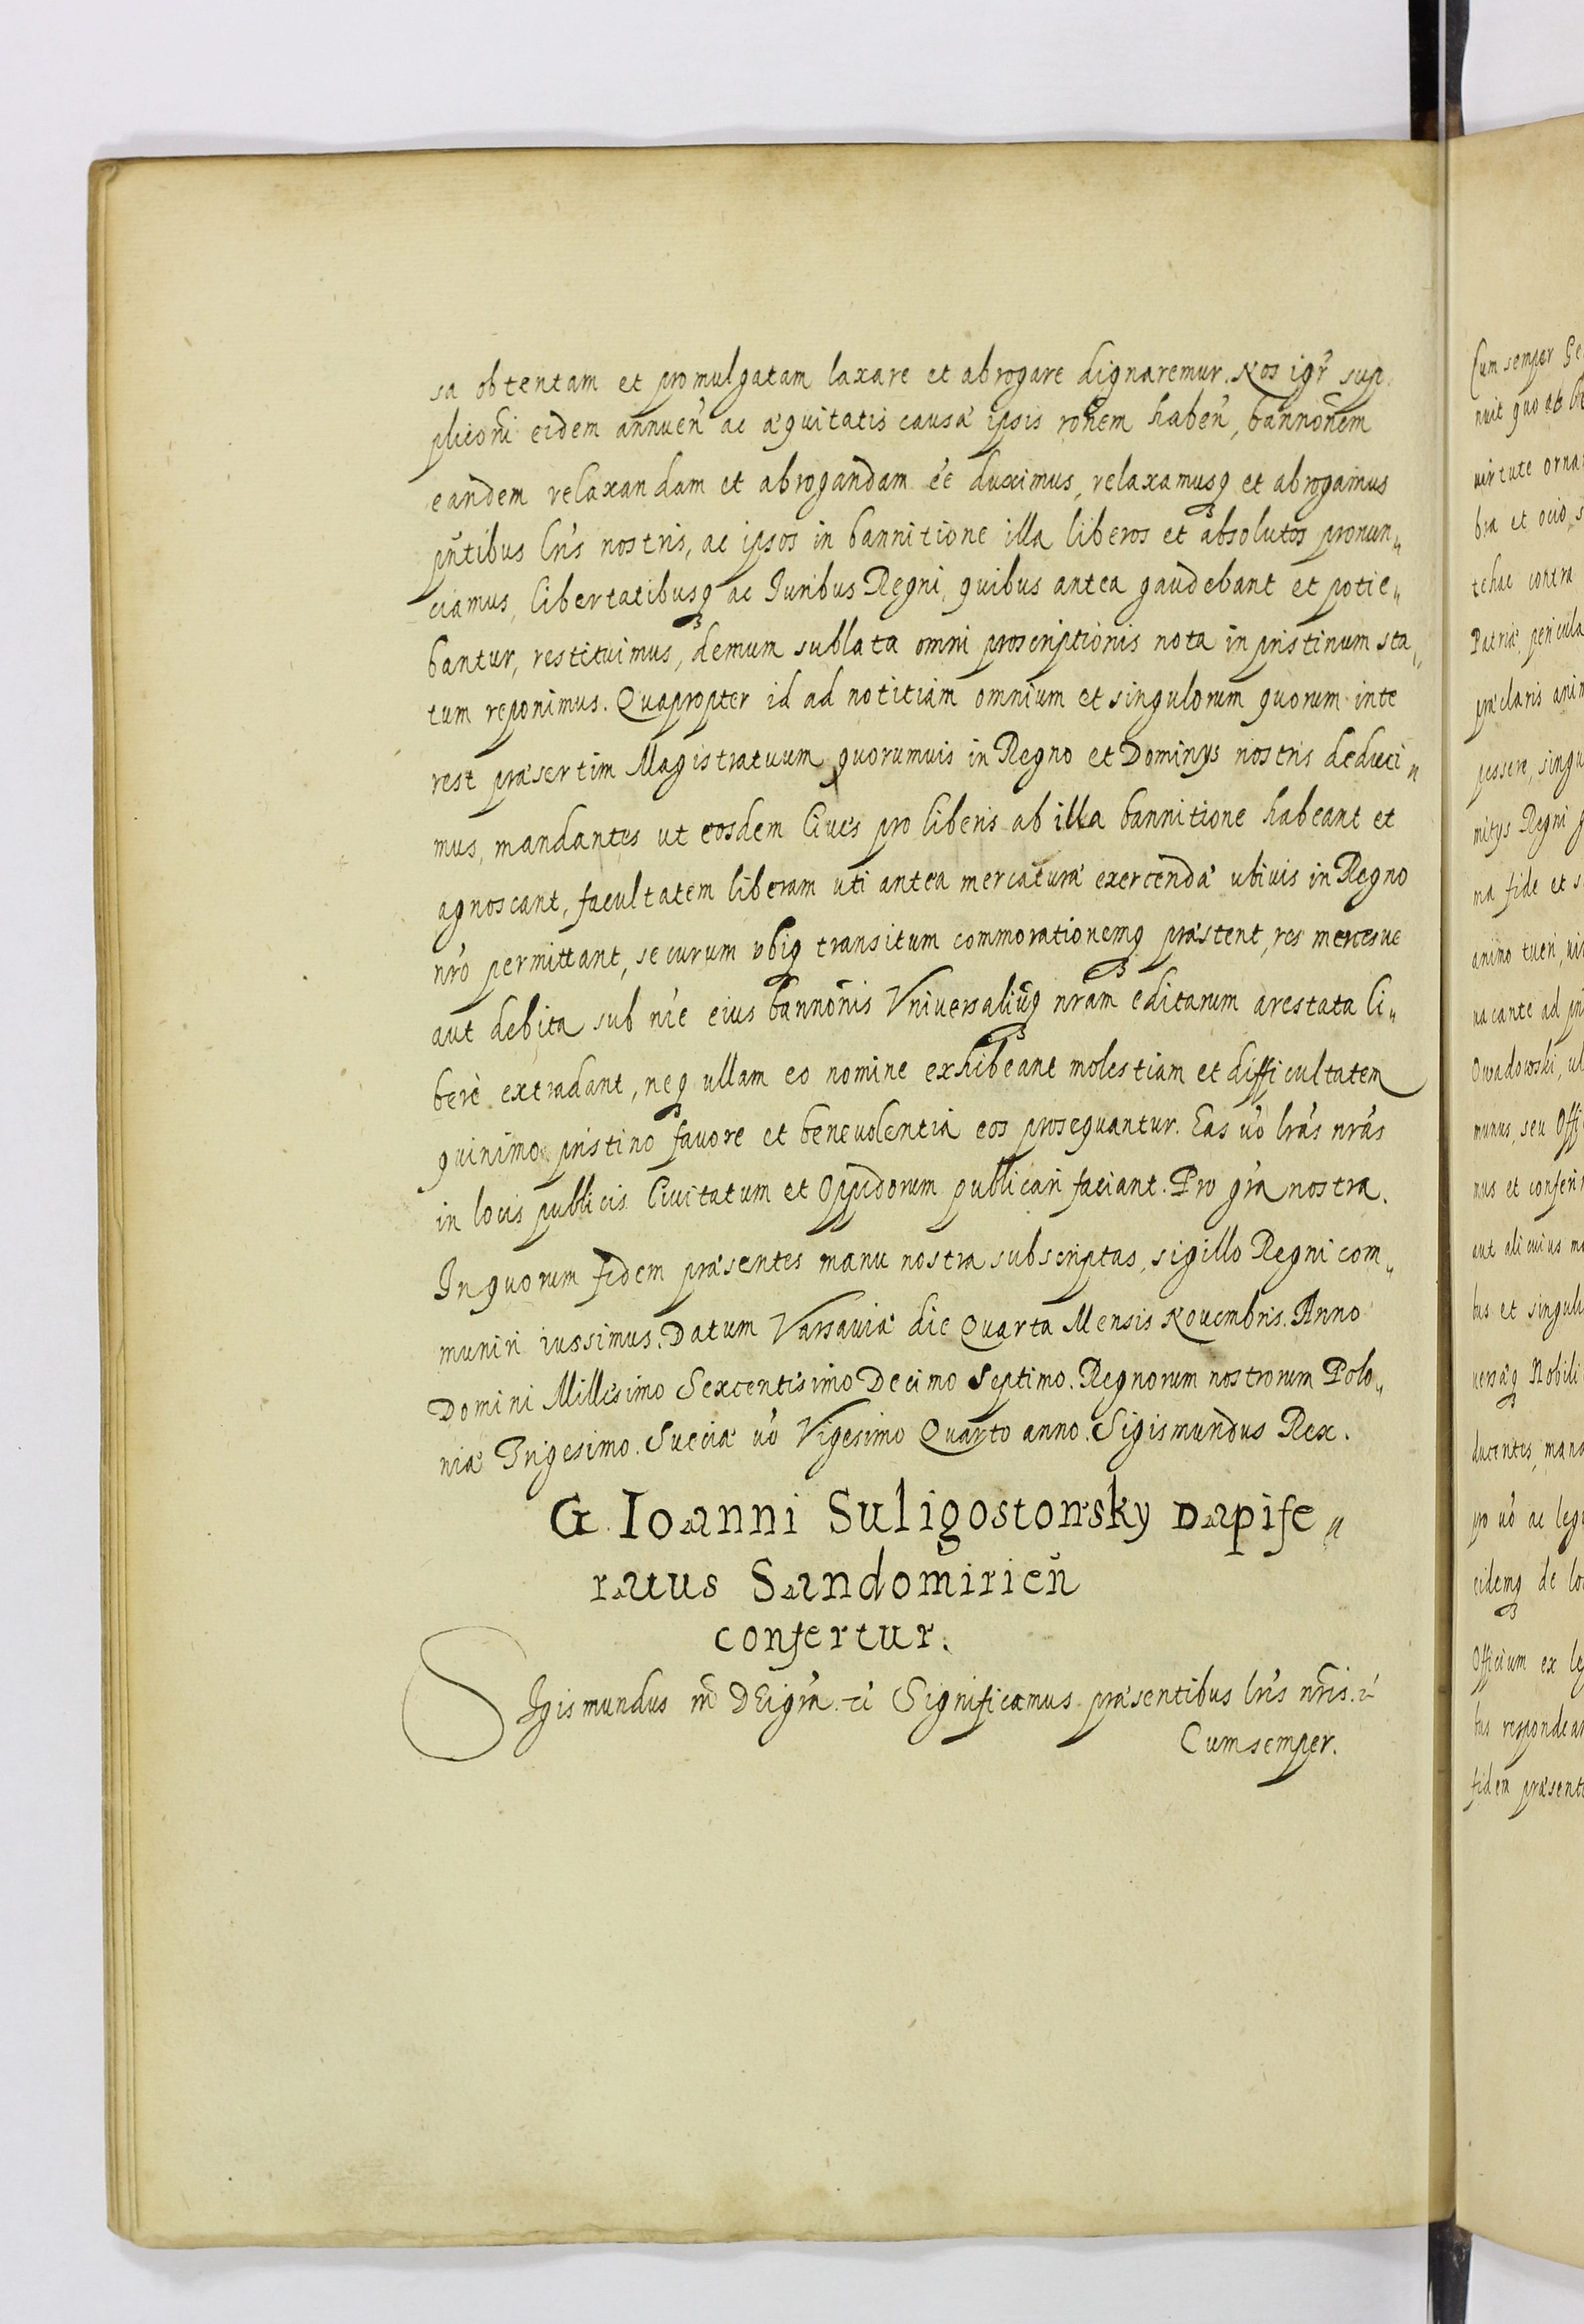 sa obtentam et promulgatam laxare et abrogare dignaremur. Nos igr̃ sup
plicoñi eidem annueñ ac æquitatis causa ipsis roñem habeñ, bannoñem
eandem relaxandam et abrogandam eẽ duximus, relaxamusq̃ et abrogamus
pñtibus lr̃is nostris, ac ipsos in bannitione illa liberos et absolutos pronun„
ciamus, libertatibusq̃ ac Iuribus Regni, quibus antea gaudebant et potie„
bantur, restituimus, demum sublata omni proscriptionis nota in pristinum sta„
tum reponimus. Quapropter id ad notitiam omnium et singulorum quorum inte
rest præsertim Magistratuum quorumuis in Regno et Dominys nostris deduci„
mus, mandantes ut eosdem Ciues pro liberis ab illa bannitione habeant et
agnoscant, facultatem liberam uti antea mercaturæ exercendæ ubiuis in Regno
nr̃o permittant, securum vbiq̃ transitum commorationemq̃ præstent, res mercesue
aut debita sub nĩe eius bannoñis Vniversaliũq̃ nrãm editarum arestata li„
berè extradant, neq̃ ullam eo nomine exhibeant molestiam et difficultatem
quinimo pristino favore et benevolentia eos prosequantur. Eas ũo lrãs nrãs
in locis publicis Civitatum et Oppidorum publicari faciant. Pro grã nostra.
In quorum fidem præsentes manu nostra subscriptas, sigillo Regni com„
muniri iussimus. Datum Varsaviæ die Quarta Mensis Novembris. Anno
Domini Millesimo Sexcentisimo Decimo Septimo. Regnorum nostrorum Polo„
niæ Trigesimo. Sueciæ ũo Vigesimo Quarto anno. Sigismundus Rex.
G. Ioanni Suligostowsky Dapife„
ratus Sandomirieñ
confertur.
SIgismundus 3tius DEi grã. etc̃ Significamus præsentibus lr̃is nr̃is. etc̃
Cum semper.
Cum semper Ge
virtute orna
bra et ocio, s
tehac contra
Patriæ pericula
præclaris anim
pessere, singu
mitys Regni
ma fide et s
animo tueri, vir
vacante ad
Owadowski, ul
munus, seu Offi
mus et conferi
aut alicuius mo
bus et singuli
versæq̃ Nobili
ducentes, mand
pro ũo ac leg
eidemq̃ de lo
Officium ex le
bus respondea
fidem præsent